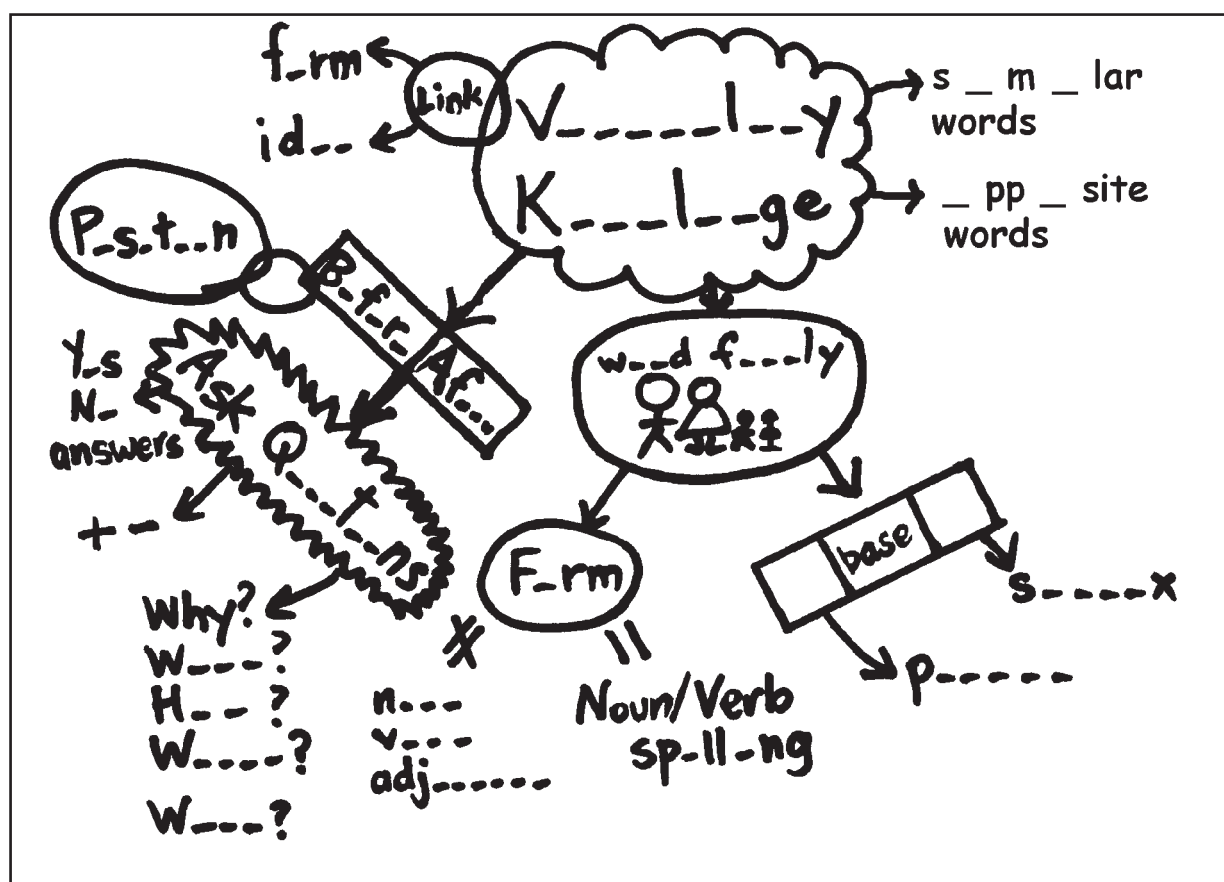 f_rm
Link
id_ _
V_ _ _ _ _l_ _y
K_ _ _ _l_ _ge
s _ m _ lar
words
_ pp _ site
words
P_s_t_ _n
B_f_r_
Af_ _ _
Y_s
N_
answers
Ask
Q_ _ _ _t_ _ns
+ -
Why?
W_ _ _?
H_ _ ?
W_ _ _ _?
W_ _ _?
w_ _d f_ _ _ly
F_rm
n_ _ _
v_ _ _
adj_ _ _ _ _ _
Noun/Verb
sp_ll_ng
base
s_ _ _ _x
p_ _ _ _ _